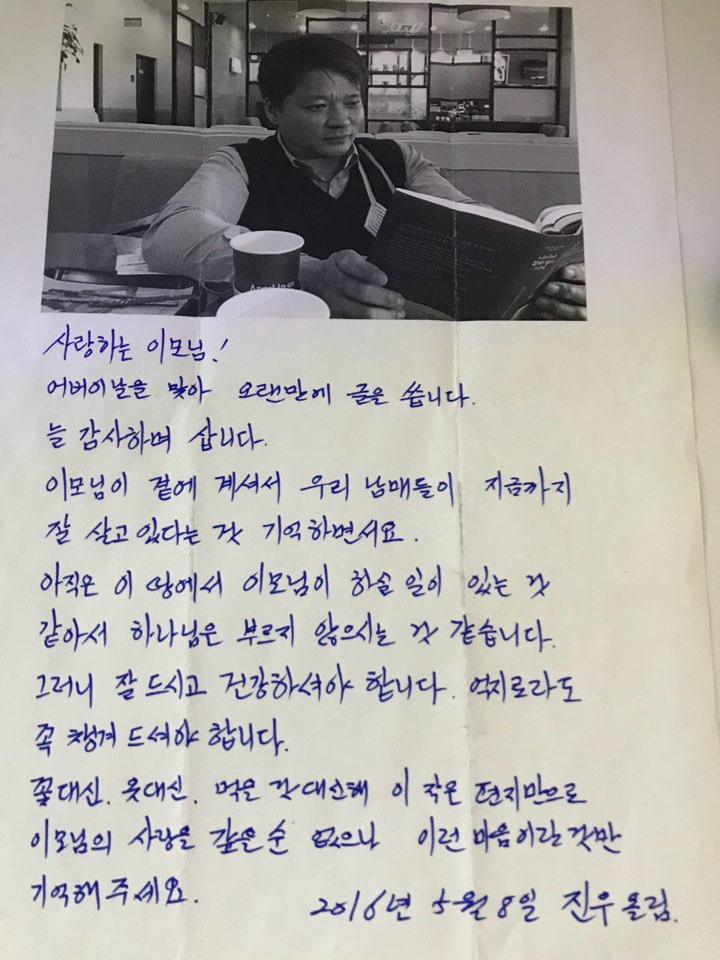 Angel-in-us
사랑하는 이모님!
어버이날을 맞아 오랜만에 글을 씁니다.
늘 감사하며 삽니다.
이모님이 곁에 계셔서 우리 남매들이 지금까지
잘 살고 있다는 것 기억하면서요.
아직은 이 땅에서 이모님이 하실 일이 있는 것
같아서 하나님은 부르지 않으시는 것 같습니다.
그러니 잘 드시고 건강하셔야 합니다. 억지로라도
꼭 챙겨 드셔야 합니다.
꽃대신. 옷대신. 먹을 것 대신해 이 작은 편지만으로
이모님의 사랑을 갚을 순 없으나 이런 마음이란 것만
기억해 주세요.
2016년 5월 8일 진우 올림.